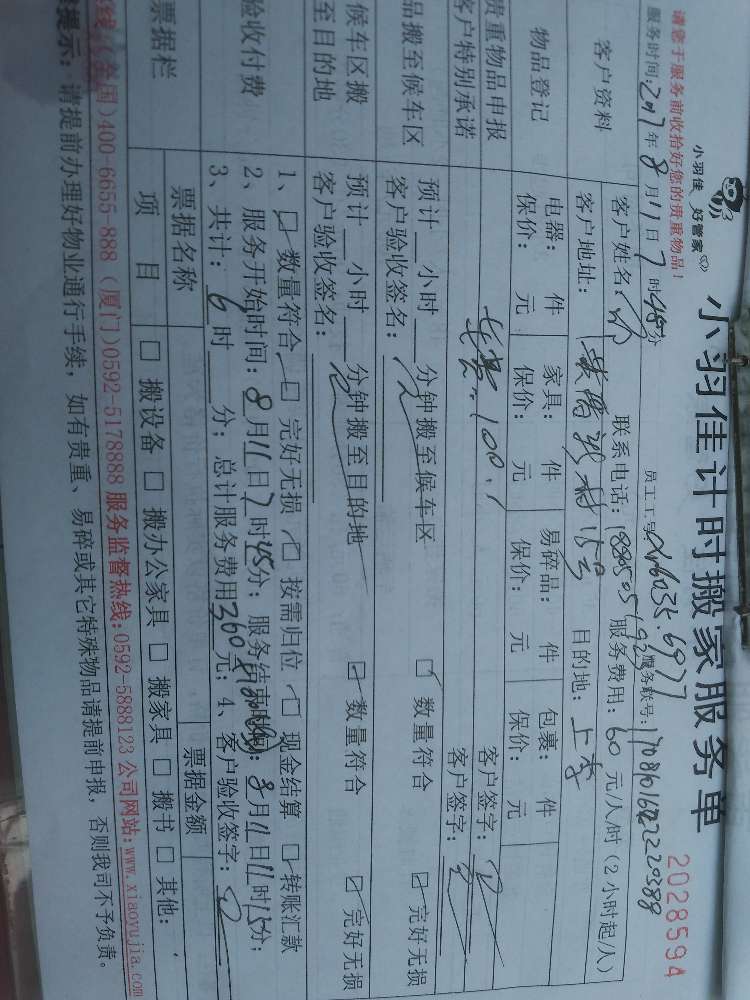 小羽佳 好管家
小羽佳计时搬家服务单
2028594
请您于服务前收拾好您的贵重物品!
服务时间: 年8月11日7时45分 员工工号 服务联号:
客户资料
客户姓名: 联系电话: 服务费用:60元/人/时(2小时起/人)
客户地址: 15号 目的地:
物品登记
电器: 件 家具: 件 易碎品: 件 包裹: 件
保价: 元 保价: 元 保价: 元 保价: 元
贵重物品申报 客户签字:
客户特别承诺 客户签字:
品搬至候车区
预计 小时 分钟搬至候车区 □ 数量符合 □ 完好无损
客户验收签名:
候车区搬至目的地
预计 小时 分钟搬至目的地 □ 数量符合 □ 完好无损
客户验收签名:
验收付费
1、□ 数量符合 □ 完好无损 □ 按需归位 □ 现金结算 □ 转账汇款
2、服务开始时间:8月11日7时45分;服务结束时间:8月11日11时15分;
3、共计:6时 分;总计服务费用360元;4、客户验收签字:
票据栏
票据名称 票据金额
项 目 □ 搬设备 □ 搬办公家具 □ 搬家具 □ 搬书 □ 其他:
线:(全国)400-6655-888 (厦门)0592-5178888 服务监督热线:0592-5888123 公司网站:www.xiaoyujia.com
提示:请提前办理好物业通行手续,如有贵重、易碎或其它特殊物品请提前申报,否则我司不予负责。